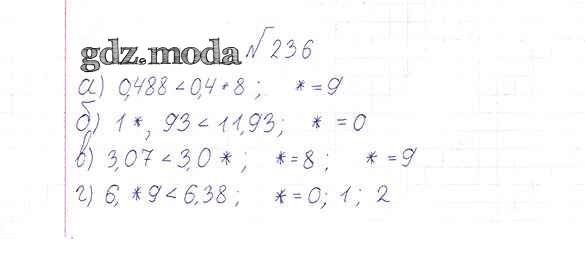 gdz.moda № 236
а) 0,488 < 0,4*8; * = 9
б) 1*, 93 < 11,93; * = 0
в) 3,07 < 3,0*; * = 8; * = 9
г) 6, *9 < 6,38; * = 0; 1; 2